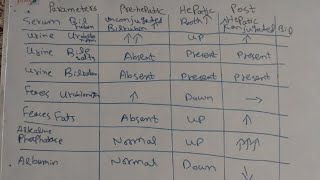 Parameters Pre-hepatic Hepatic Post
Serum Bil unconjugated Bilirubin ↑ Both ↑ Hepatic conjugated
Urine ↑↑ UP ↑
Urine Bile salts Absent Present Present
Urine Bilirubin Absent Present Present
Feces ↑ Down →
Feces Fats Absent UP ↑
Alkaline Phosphatase Normal UP ↑↑↑
Albumin Normal Down ↓